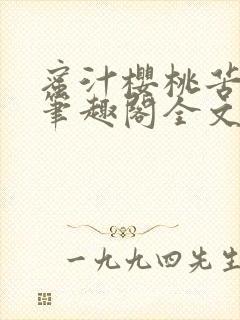 蜜汁樱桃苦
笔趣阁全文
一九九四先生